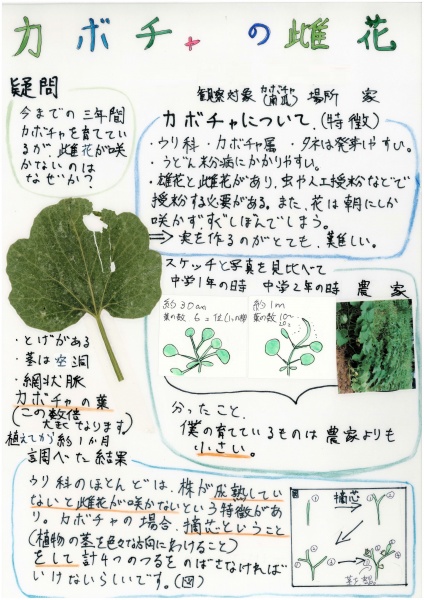 カボチャの雌花
疑問
今までの三年間
カボチャを育てている
が、雌花が咲
かないのは
なぜか？
観察対象 カボチャ(南瓜) 場所 家
カボチャについて、(特徴)
・ウリ科・カボチャ属 ・タネは発芽しやすい。
・うどん粉病にかかりやすい。
・雄花と雌花があり、虫や人工授粉などで
授粉する必要がある。また、花は朝にしか
咲かず、すぐしぼんでしまう。
⇒実を作るのがとても、難しい。
・とげがある
・茎は空洞
・網状脈
カボチャの葉
(この数倍
大きくなります)
植えてから約1か月
スケッチと写真を見比べて
中学1年の時 中学2年の時 農家
約30cm
葉の数
約1m
葉の数
分ったこと、
僕の育てているものは農家よりも
小さい。
調べた結果
ウリ科のほとんどは、株が成熟してい
ないと雌花が咲かないという特徴があ
り。カボチャの場合、摘芯ということ
(植物の茎を色々な方向にわけること)
をして計4つのつるをのばさなければ
いけないらしいです。(図)
図
摘芯